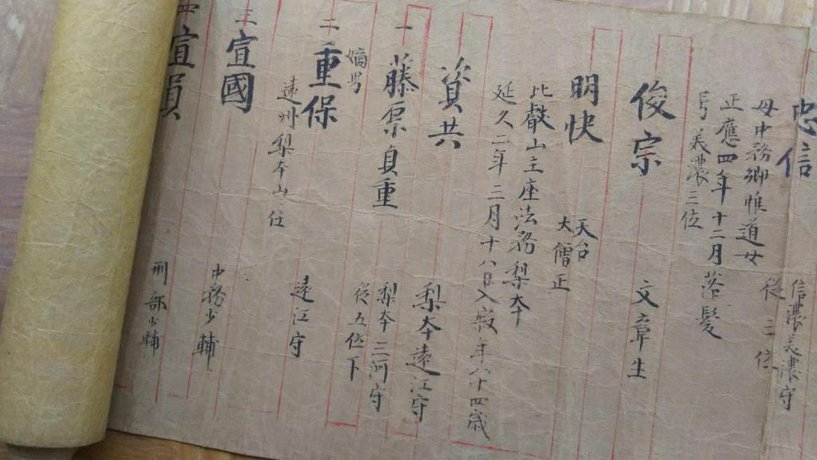 忠信
信濃美濃守
従三位
母中務卿惟道女
正應四年十二月落髪
号美濃三位
俊宗
文章生
明快
天台
大僧正
比叡山主座法務梨本
延久二年三月十八日入寂年八十四歳
資共
梨本遠江守
一藤原自重
梨本三河守
従五位下
嫡男
二重保
遠江守
遠州梨本山位
三宣國
中務少輔
四宣員
刑部少輔